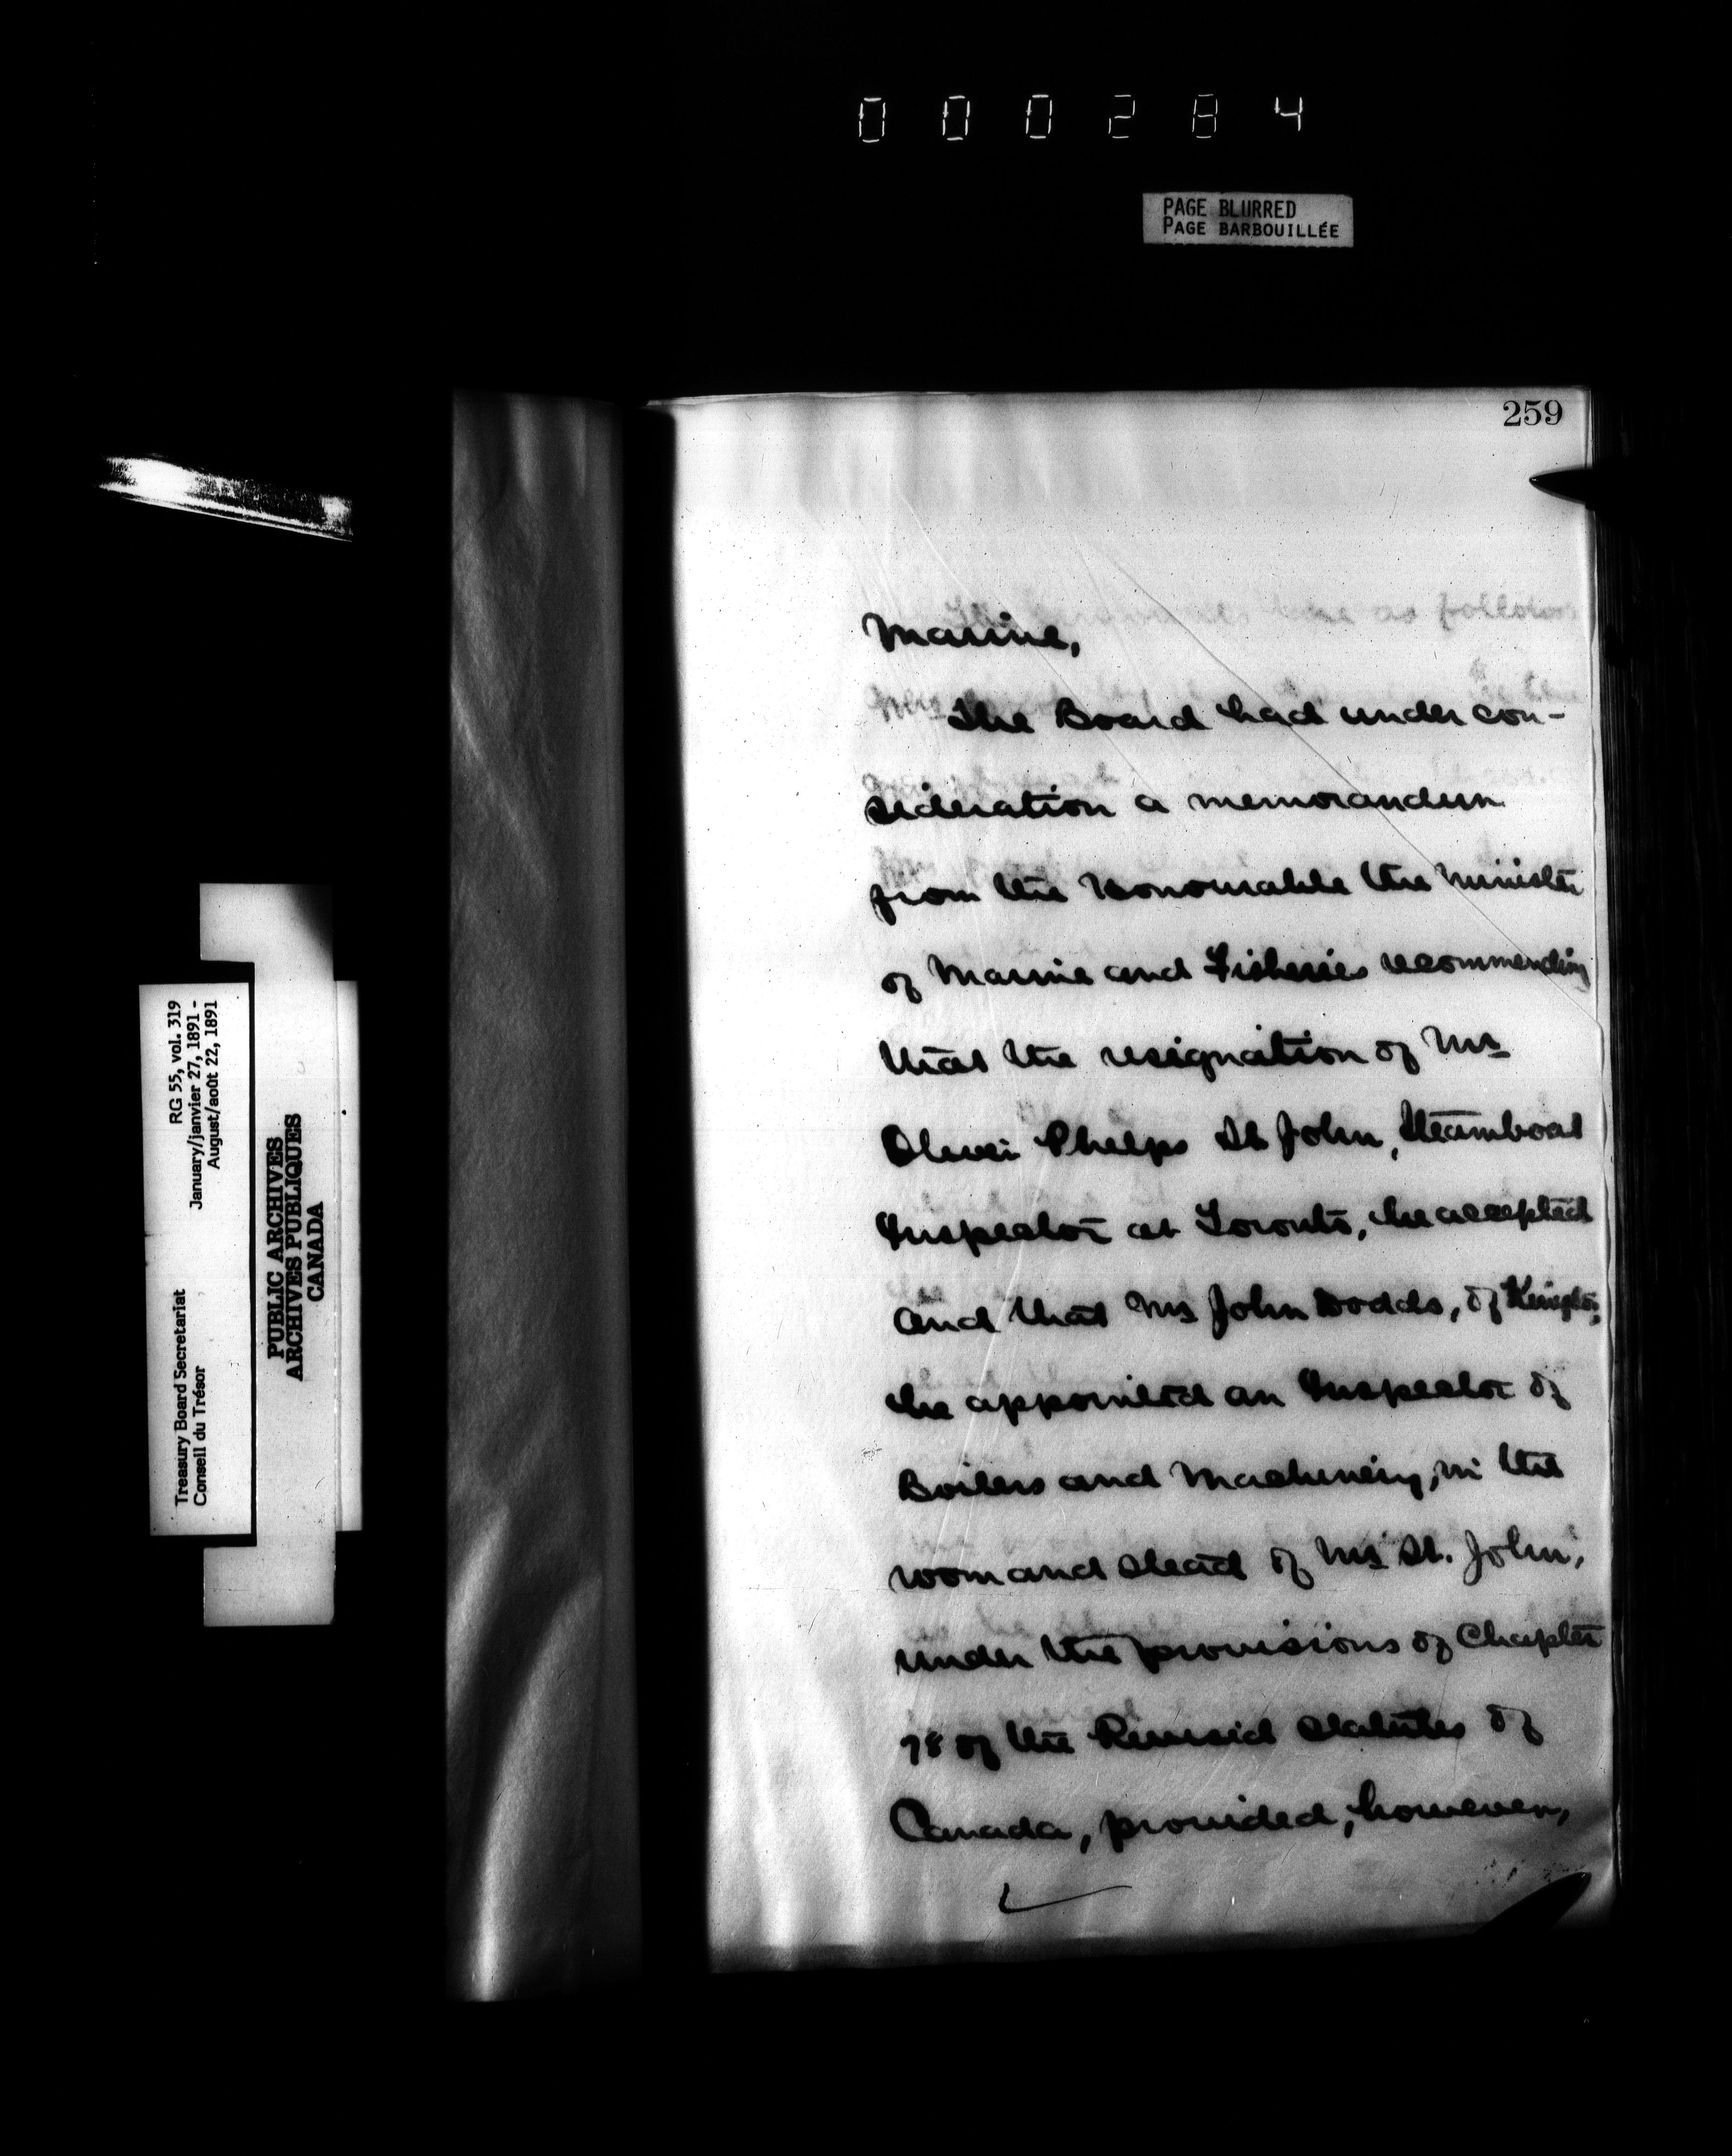 000284
PAGE BLURRED
PAGE BARBOUILLÉE
259
Marine,
The Board had under con-
sideration a memorandum
from the Honourable the Minister
of Marine and Fisheries recommending
that the resignation of Mr
Oliver Phelps St John, Steamboat
Inspector at Toronto, be accepted
and that Mr John Dodds, of Kingston,
be appointed an Inspector of
Boilers and Machinery, in the
room and stead of Mr St. John,
under the provisions of Chapter
78 of the Revised Statutes of
Canada, provided, however,
Treasury Board Secretariat
Conseil du Trésor
RG 55, vol. 319
January/janvier 27, 1891 -
August/août 22, 1891
PUBLIC ARCHIVES
ARCHIVES PUBLIQUES
CANADA